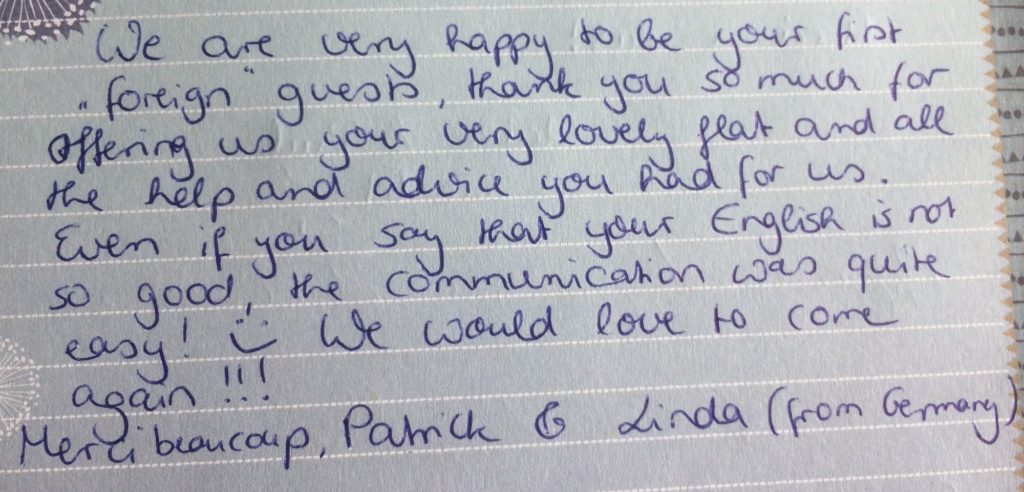 We are very happy to be your first
„foreign“ guests, thank you so much for
offering us your very lovely flat and all
the help and advice you had for us.
Even if you say that your English is not
so good, the communication was quite
easy! :) We would love to come
again!!!
Merci beaucoup, Patrick & Linda (from Germany)